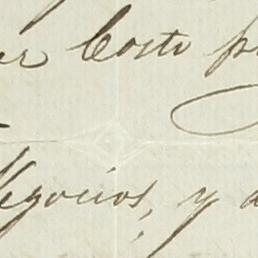 er Costo p
Negocios, y a